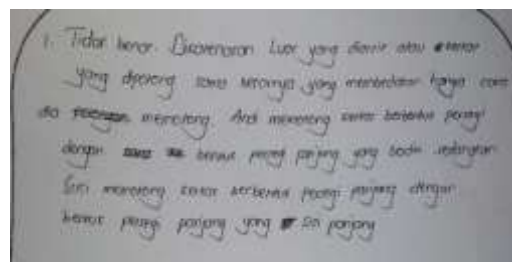 1. Tidak benar. Dikarenakan Luar yang diarsir atau
yang dipotong sama besarnya yang membedakan hanya cara
dia memotong. Andi memotong kertas berbentuk persegi
dengan bentuk persegi panjang yang sedangkan
Siti memotong kertas berbentuk persegi panjang dengan
bentuk persegi panjang yang panjang